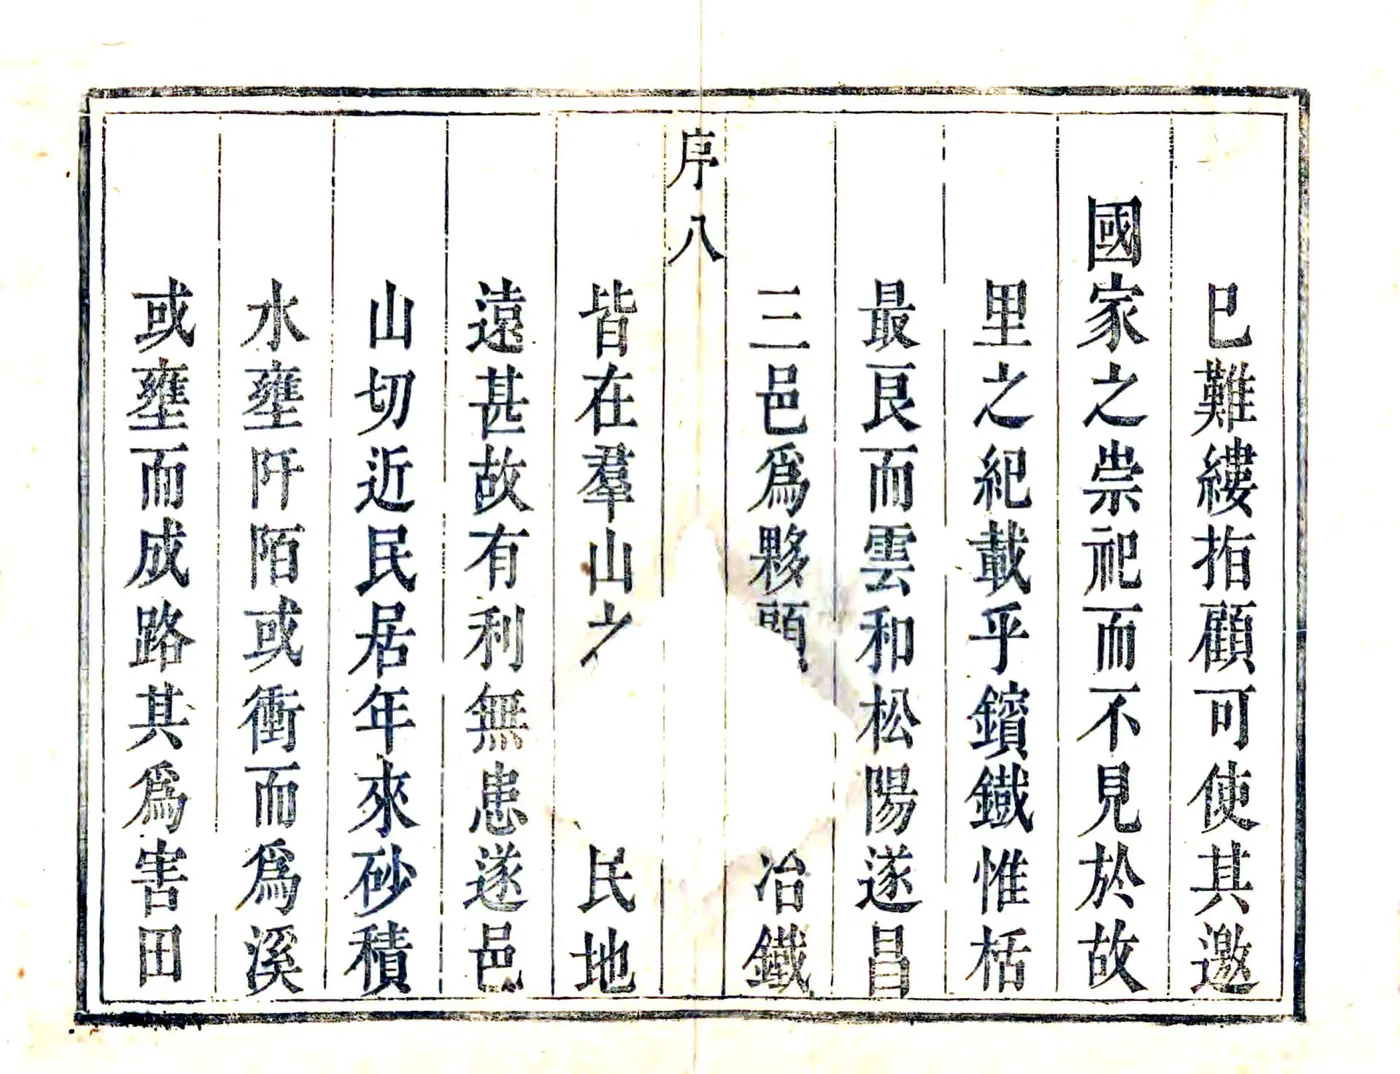 已難縷指顧可使其邀
國家之崇祀而不見於故
里之紀載乎鑌鐡惟栝
最良而雲和松陽遂昌
三邑為夥顧冶鐡
序八
皆在羣山之民地
遠甚故有利無患遂邑
山切近民居年來砂積
水壅阡陌或衝而為溪
或壅而成路其為害田